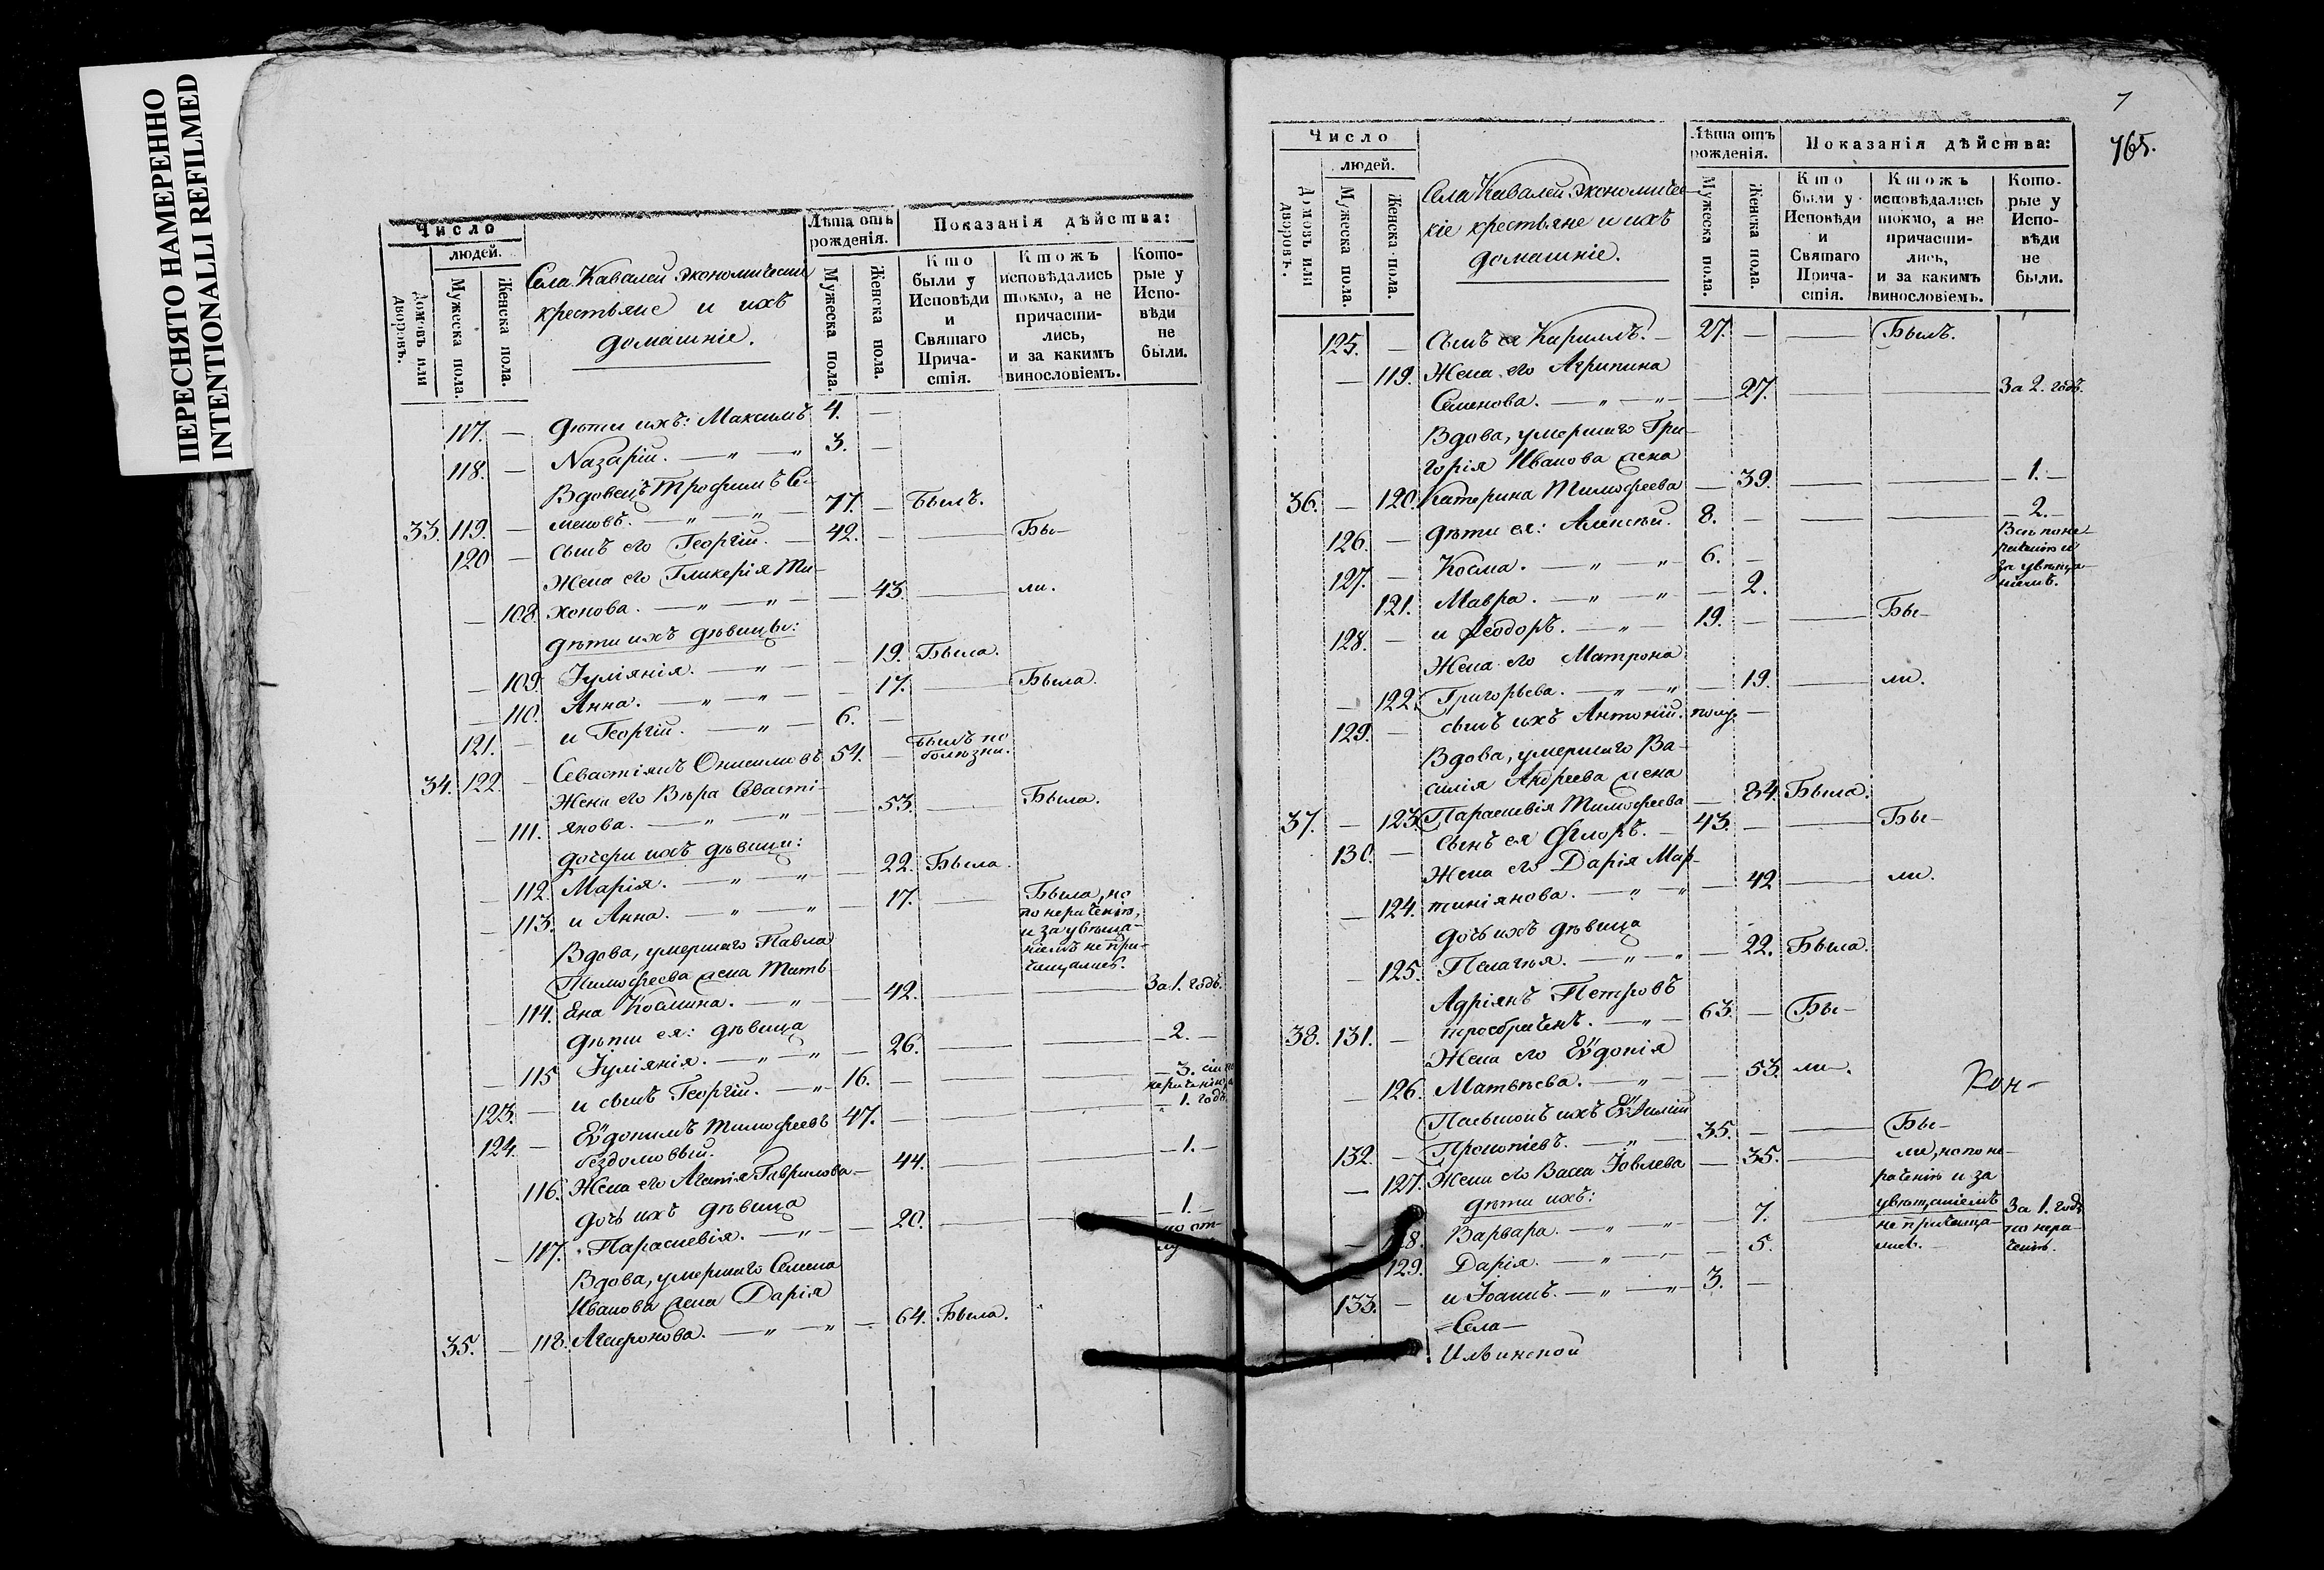 ПЕРЕСНЯТО НАМЕРЕННО
INTENTIONALLI REFILMED
Число
людей.
Домовъ или дворовъ.
Мужеска пола.
Женска пола.
Села Кавалей экономическiе
крестьяне и ихъ
домашнiе.
Лѣта отъ рожденiя.
Мужеска пола.
Женска пола.
Показанiя дѣйства:
Кто были у Исповѣди и Святаго Прича- стiя.
Ктожъ исповѣдались токмо, а не причасти- лись, и за какимъ винословiемъ.
Кото- рые у Испо- вѣди не были.
117. — Дѣти ихъ: Максимъ 4. —
118. — Назарiй. — „ — „ 3. —
Вдовецъ Трофимъ Се-
33. 119. — меновъ. — „ — „ — 77. — Былъ.
120 — Сынъ его Георгiй. — 42. — — Бы-
Жена его Гликерiя Ти-
— 108. хонова. — „ — „ — — 43. — ли.
Дѣти ихъ дѣвицы:
— 109. Iулiянiя. — „ — — 19. Была.
— 110. Анна. — „ — „ — — 17. — Была.
121. — и Георгiй. — „ — 6. —
34. 122 — Севастiянъ Онисимовъ 54. — Былъ по болѣзни.
Жена его Вѣра Севастi-
— 111. янова. — „ — „ — 53. — Была.
Дочери ихъ дѣвицы:
— 112. Марiя. — „ — „ — 22. Была.
— 113. и Анна. — „ — „ — 17. — Была, но
по нераченiю,
и за увѣща-
нiемъ не при-
чащались.
Вдова, умершаго Павла
Тимофеева жена Мать-
— 114. ена Космина. — „ — 42. — — За 1. годъ.
Дѣти ея: дѣвица
— 115 Iулiянiя. — „ — „ — 26. — — 2. —
123. — и сынъ Георгiй. — „ 16. — — — 3.
124. — Еѵдокимъ Тимофеевъ 47. — — 1. годъ
бездомовый.
116. Жена его Агапiя Гаврилова — 44. — — 1. —
Дочь ихъ дѣвица
— 117. Параскевiя. — „ — — 20. — — 1. —
Вдова, умершаго Семена
Иванова жена Дарiя
35. — 118. Агафонова. — „ — „ — 64. Была.
7
765.
Число
людей.
Домовъ или дворовъ.
Мужеска пола.
Женска пола.
Села Кавалей экономичес-
кiе крестьяне и ихъ
домашнiе.
Лѣта отъ рожденiя.
Мужеска пола.
Женска пола.
Показанiя дѣйства:
Кто были у Исповѣди и Святаго Прича- стiя.
Ктожъ исповѣдались токмо, а не причасти- лись, и за какимъ винословiемъ.
Кото- рые у Испо- вѣди не были.
125. — Сынъ ея Кириллъ. — 27. — — Былъ.
— 119. Жена его Агрипина
Семенова. — „ — „ — 27. — — За 2. годъ.
Вдова, умершаго Гри-
горiя Иванова жена
36. — 120. Катерина Тимофеева — 39. — — 1. —
126. — Дѣти ея: Алексѣй. 8. — — — 2. —
127. — Косма. — „ — „ 6. — Всѣ по не-
раченiю и
за увѣща-
нiемъ.
121. Мавра. — „ — „ — 2.
128. — и Ѳеодоръ. — „ — 19. — — Бы-
Жена его Матрона
— 122. Григорьева. — „ — „ — 19. — ли.
129. — сынъ ихъ Антонiй. полу. —
Вдова, умершаго Ва-
силiя Андреева жена
37. — 123. Параскевiя Тимофеева — 84. Была.
130. — Сынъ ея Флоръ. — 43. — — Бы-
Жена его Дарiя Мар-
— 124. тинiянова. — „ — „ — 42 — ли.
Дочь ихъ дѣвица
— 125. Пелагѣя. — „ — „ — 22. Была.
Адрiянъ Петровъ
38. 131. — просвѣщенъ. — „ — 63. — Бы-
Жена его Еѵдокiя
— 126. Матвѣева. — „ — — 53. ли.
Пасынокъ ихъ Еѵѳимiй
132. — Прокопiевъ. — „ — 35. — — Бы-
— 127. Жена его Васса Iовлева — 35. — ли, но по не-
раченiю и за
увѣщанiемъ
не причаща-
лись. —
Дѣти ихъ:
— 128. Варвара. — „ — „ — 7. — За 1. годъ
по нера-
ченiю.
— 129. Дарiя. — „ — „ — 5.
133. — и Iоаннъ. — „ — „ 3. —
Села
Ильинской